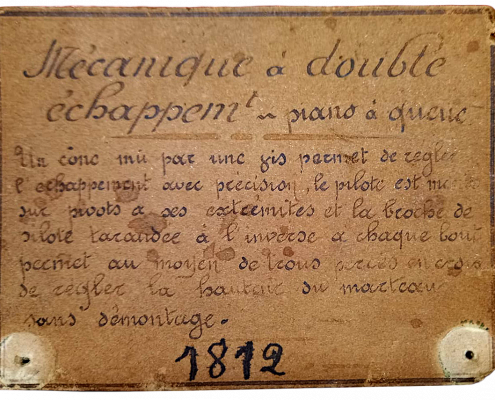 Mécanique à double
échappemt — piano à queue
Un cône mû par une vis permet de régler
l'échappement avec précision, le pilote est monté
sur pivots à ses extrémités et la broche de
pilote taraudée à l'inverse à chaque bout
permet au moyen de trous percés en croix
de régler la hauteur du marteau
sans démontage.
1812